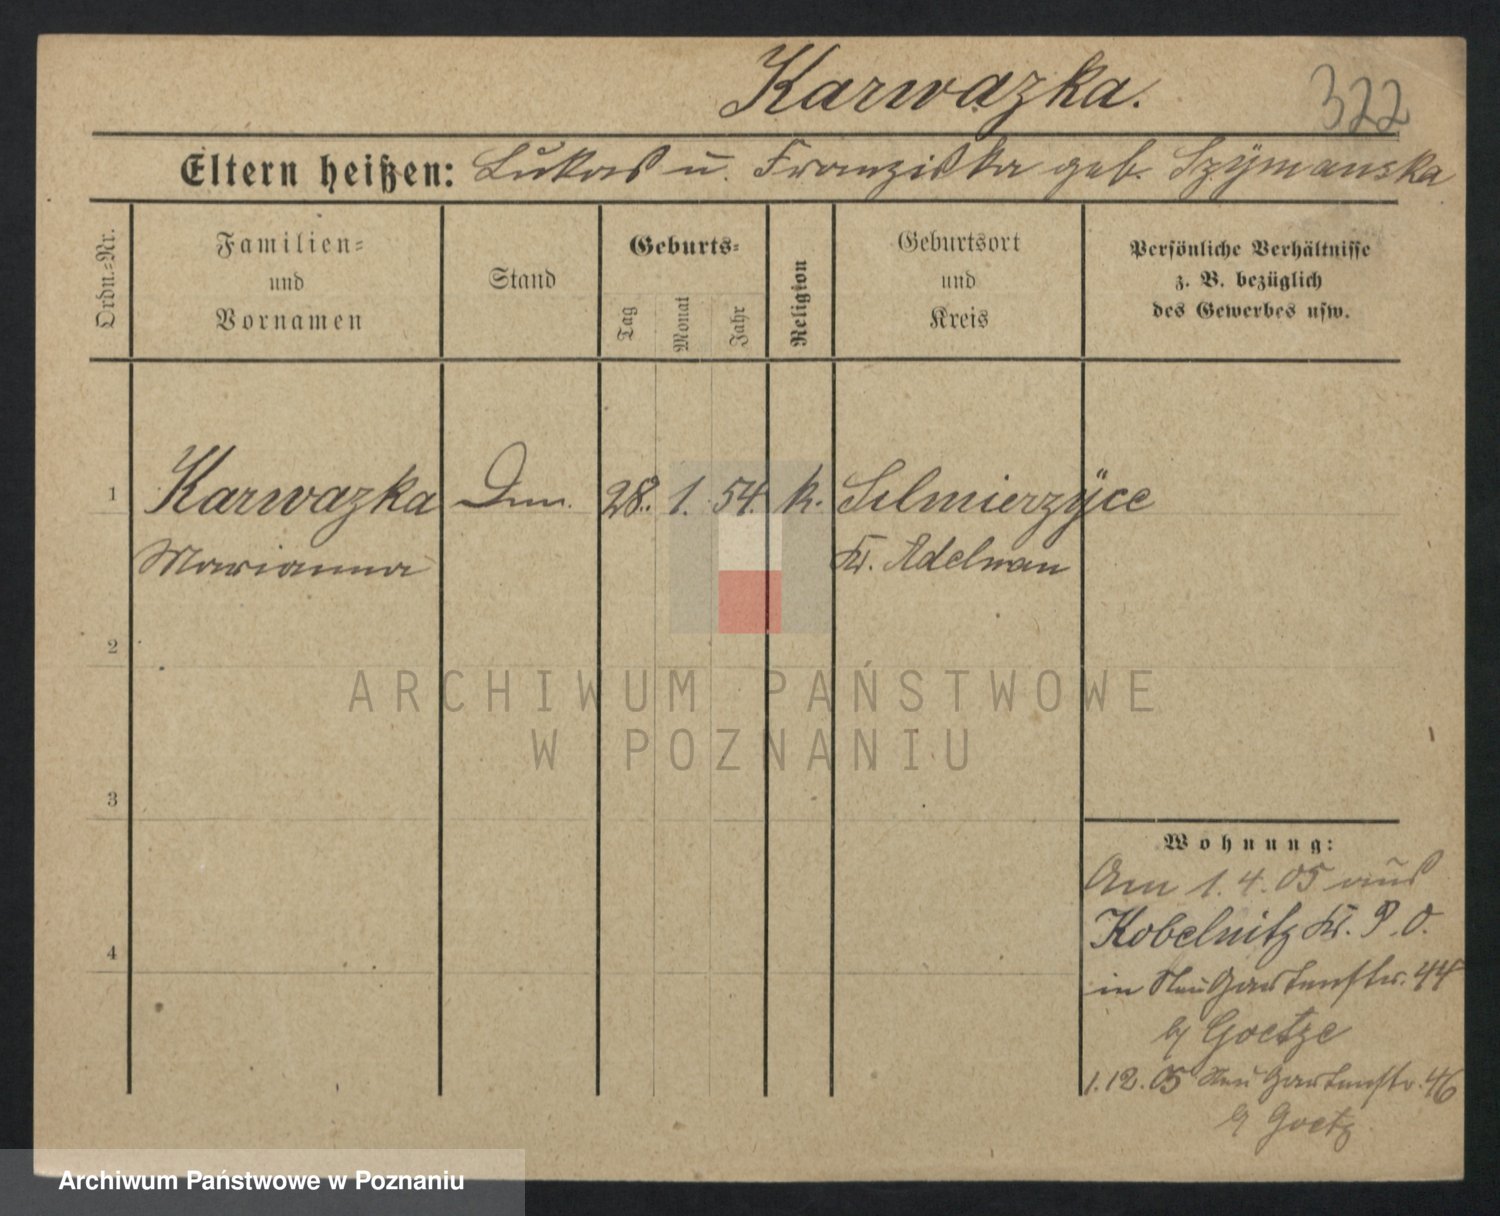 Karwazka.
322
Eltern heißen: Lukas u. Franziska geb. Szÿmanska
Ordn.=Nr.
Familien=
und
Vornamen
Stand
Geburts=
Tag
Monat
Jahr
Religion
Geburtsort
und
Kreis
Persönliche Verhältnisse
z. B. bezüglich
des Gewerbes usw.
1 Karwazka 28. 1. 54. k. Sulmierzÿce
Marianna Kr. Adelnau
2
ARCHIWUM PAŃSTWOWE
W POZNANIU
3
Wohnung:
Am 1. 4. 05 aus
4 Kobelnitz Kr. P. O.
in Neu Gartenstr. 44
b/ Goetze
1. 12. 05 Neu Gartenstr. 46
b/ Goetz
Archiwum Państwowe w Poznaniu